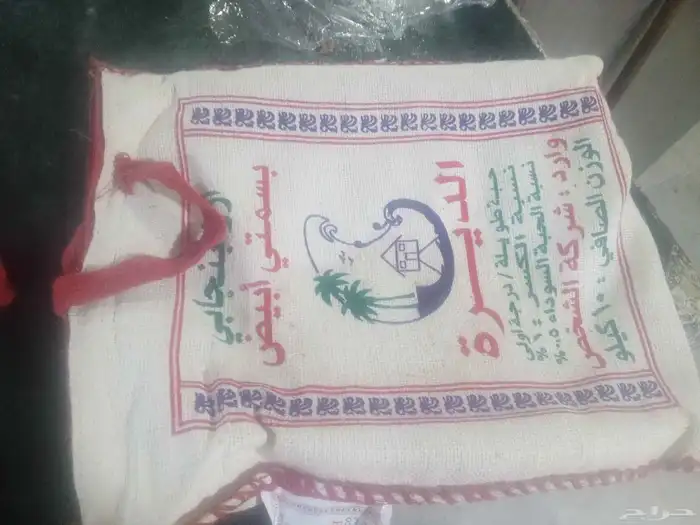 أرز بنجابي
بسمتي أبيض
الديرة
حبة طويلة / درجة أولى
نسبة الكسر : ١ %
نسبة الحبة السوداء ٠،٥ %
وارد : شركة الشخص
الوزن الصافي : ١٠ كيلو
حراج